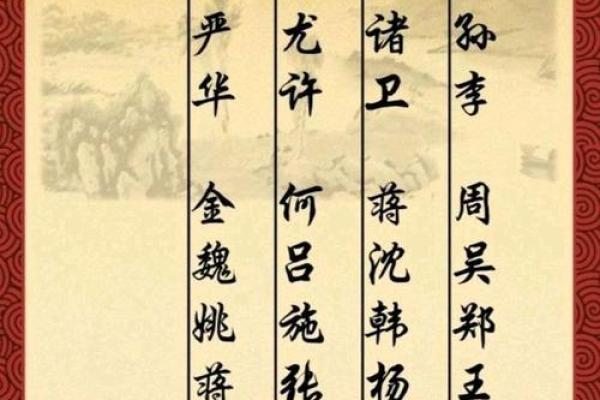 孙李 周吴郑王
诸卫 蒋沈韩杨
尤许 何吕施张
严华 金魏姚蒋